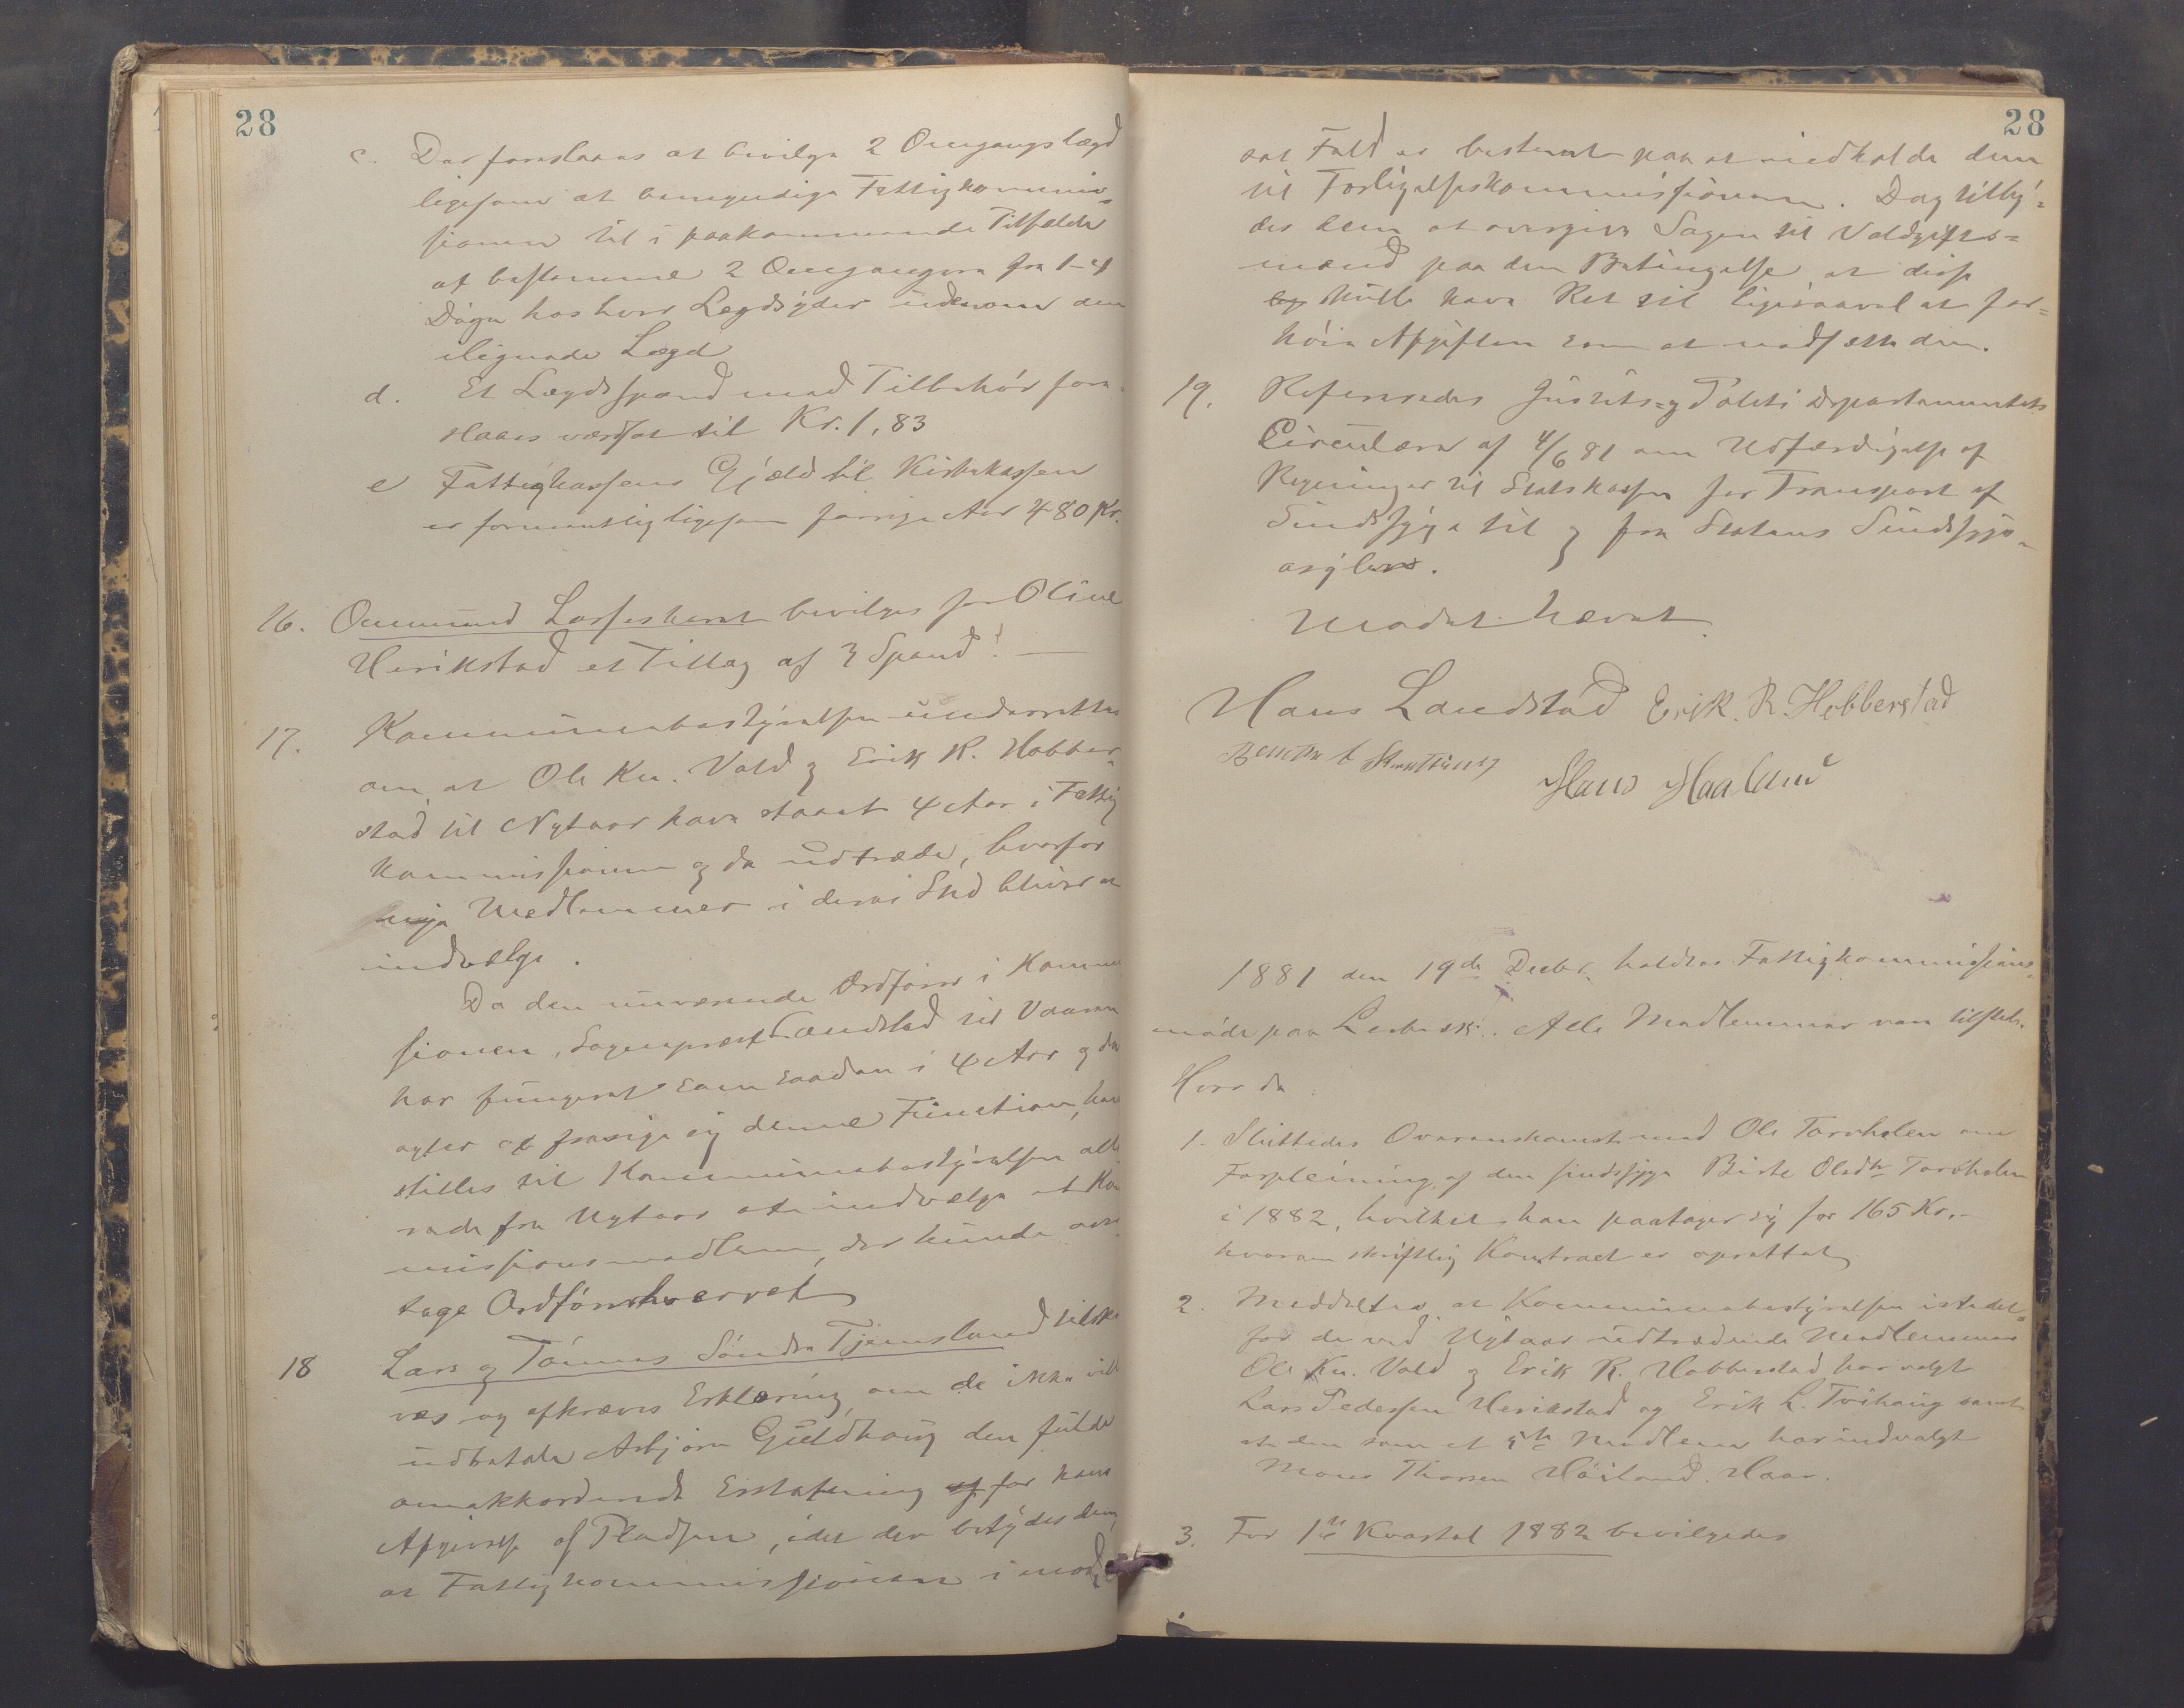 28
c. Der foreslaaes at bevilge 2 Omgangslægd
ligesom at bemyndige Fattigkommis=
sionen til i paakommende Tilfælde
at bestemme 2 Omgangen fra 1-4
Døgn hos hver Lægdsyder udenom den
ilignede Lægd
d. Et Lægdsspand med Tilbehør fore-
slaaes værdsat til Kr. 1,83
e Fattigkassens Gjæld til Kirkekassen
er formentlig ligesom forrige Aar 480 Kr.
16. Ommund Lasseskaret bevilges for Oline
Herikstad et Tillæg af 3 Spand! —
17. Kommunebestyrelsen underrettes
om, at Ole Kn. Vold og Erik R. Hobber=
stad til Nytaar have staaet 4 Aar i Fattig
kommissionen og da udtræde, hvorfor
nye Medlemmer i deres Sted bliver at
indvælge.
Da den nuværende Ordfører i Kommis
sionen, Sognepræst Landstad til Vaaren
har fungeret som saadan i 4 Aar og da
agter at frasige sig denne Function, hen
stilles til Kommunebestyrelsen alle
rede fra Nytaar at indvælge et Kom
missionsmedlem, der kunde over
tage Ordførerhvervet
18 Lars og Tønnes Søndre Tjemsland tilskri
ves og afkræves Erklæring, om de ikke vil
udbetale Asbjørn Guldhaug den fulde
omakkorderede Erstatning af for hans
Afgivelse af Pladsen, idet der betydes dem,
at Fattigkommissionen i mod=
28
sat Fald er bestemt paa at indkalde dem
til Forligelseskommissionen. Dog tilby=
des dem at overgive Sagen til Voldgifts=
mænd paa den Betingelse at disse
og skulle have Ret til ligesaavel at for=
høie Afgiften som at nedsætte den.
19. Refereredes Justits= og Politi Departementets
Circulære af 4/6 81 om Udfærdigelse af
Regninger til Statskassen for Transport af
Sindssyge til og fra Statens Sindssyge=
asyler.
Mødet hævet.
Hans Landstad Erik. R. Hobberstad
Hans Haaland
1881 den 19de Decbr. holdtes Fattigkommissions=
møde paa . Alle Medlemmer vare tilstede.
Hvor da
1. Sluttedes Overenskomst med Ole Torvholen om
Forpleining af den sindssyge Birte Olsdtr Torvholen
i 1882, hvilket han paatager sig for 165 Kr.-
hvorom skriftlig Kontract er oprettet
2. Meddeltes at Kommunebestyrelsen istedet=
for de ved Nytaar udtrædende Medlemmer
Ole Kn. Vold og Erik R. Hobberstad har valgt
Lars Pedersen Herikstad og Erik L. Tvihaug samt
at den som et 5te Medlem har indvalgt
Mons Thorsen Høiland. Haar.
3. For 1ste Kvartal 1882 bevilgedes